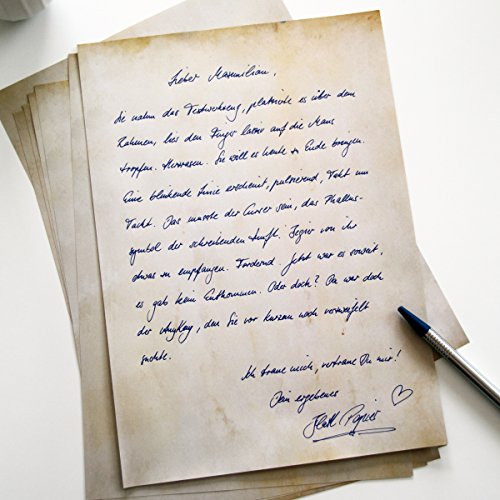 Lieber Maximilian,
sie nahm das Textwerkzeug, platzierte es über dem
Rahmen, lies den Finger lasziv auf die Maus
tropfen. Sie will es heute zu Ende bringen.
Eine blinkende Linie erscheint, pulsierend, Takt um
Takt. Das musste der Cursor sein, das Phallus-
symbol der schreibenden Zunft. Begier von ihr
etwas zu empfangen. Fordernd. Jetzt war es soweit,
es gab kein Entkommen. Oder doch? Da war doch
der Anfang, den Sie vor kurzem noch verzweifelt
suchte.
Ich traue mich, vertraue Du mir!
Dein ergebenes
Blatt Papier